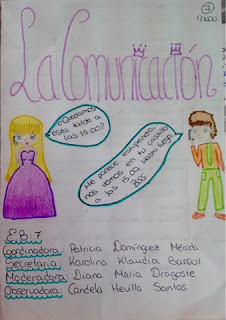 7
La Comunicación
¿Quedamos
esta tarde a
las 15:00?
Me parece estupendo,
nos vemos en tu castillo
a las 15:00. Hasta luego
BSS
E.B: 7
Coordinadora: Patricia Domínguez Mérida
Secretaria: Karolina Klaudia Barsul
Moderadora: Diana Maria Dragoste
Observadora: Candela Hevilla Santos.